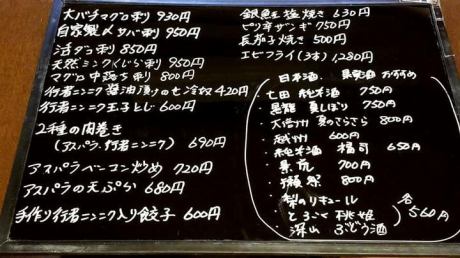 大バチマグロ刺り 930円
自家製〆サバ刺り 950円
活ダコ刺り 850円
天然ミンクくじら刺り 950円
マグロ中落ち刺り 800円
行者ニンニク醤油漬けのせ冷奴 420円
行者ニンニク玉子とじ 600円
2種の肉巻き
(アスパラ・行者ニンニク) 690円
アスパラベーコン炒め 720円
アスパラの天ぷら 680円
手作り行者ニンニク入り餃子 600円
銀鮭塩焼き 630円
ピリ辛ザンギ 750円
長茄子焼き 500円
エビフライ(3本) 1,280円
日本酒、果実酒おすすめ
七田 純米酒 750円
・黒龍 夏しぼり 750円
・大信州 夏のさらさら 800円
・越州 600円
・純米酒 福司 650円
・景虎 700円
・獺祭 800円
・梨のリキュール
・とろこく 桃姫
・深山 ぶどう酒
各 560円